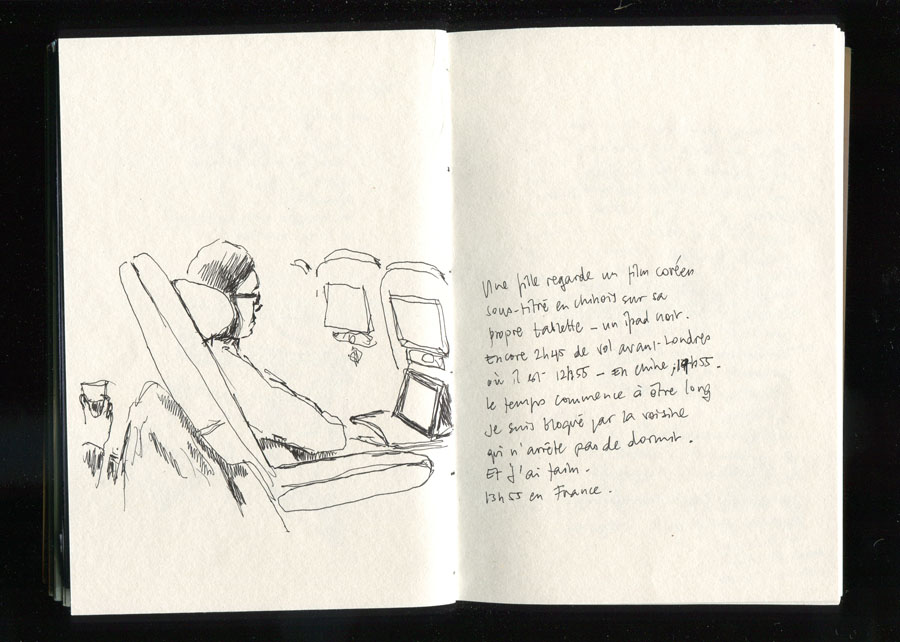 Une fille regarde un film coréen
sous-titré en chinois sur sa
propre tablette – un ipad noir.
Encore 2h45 de vol avant Londres
où il est 12h55 – En chine, 19h55.
le temps commence à être long
je suis bloqué par la voisine
qui n'arrête pas de dormir.
Et j'ai faim.
13h55 en France.